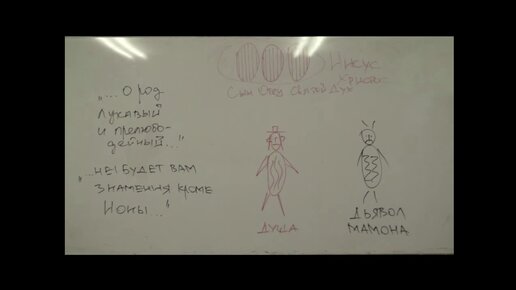 „...О род
лукавый
и прелюбо-
дейный..."
„...не! будет вам
знамения кроме
Ионы.."
Иисус
Христос
Сын Отец Святой Дух
душа
дьявол
мамона